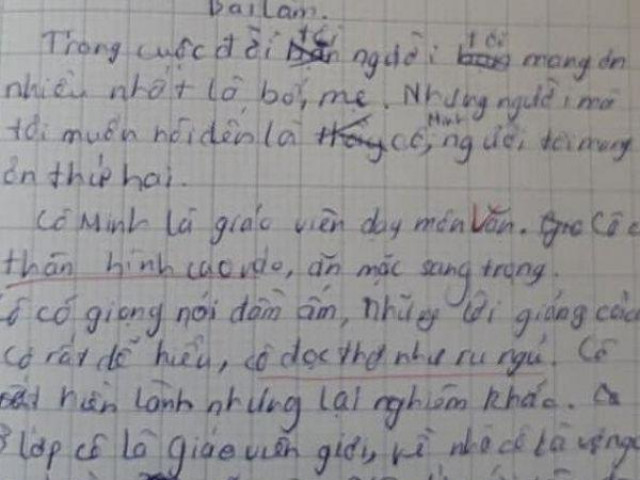 Bài làm.
Trong cuộc đời tôi người tôi mang ơn
nhiều nhất là bố, mẹ. Nhưng người mà
tôi muốn nói đến là cô Minh, người tôi mang
ơn thứ hai.
Cô Minh là giáo viên dạy môn Văn. Cô
thân hình cao ráo, ăn mặc sang trọng.
cô có giọng nói đầm ấm, những lời giảng của
cô rất dễ hiểu, cô đọc thơ như ru ngủ. Cô
rất hiền lành nhưng lại nghiêm khắc.
Ở lớp cô là giáo viên giỏi, về nhà cô là